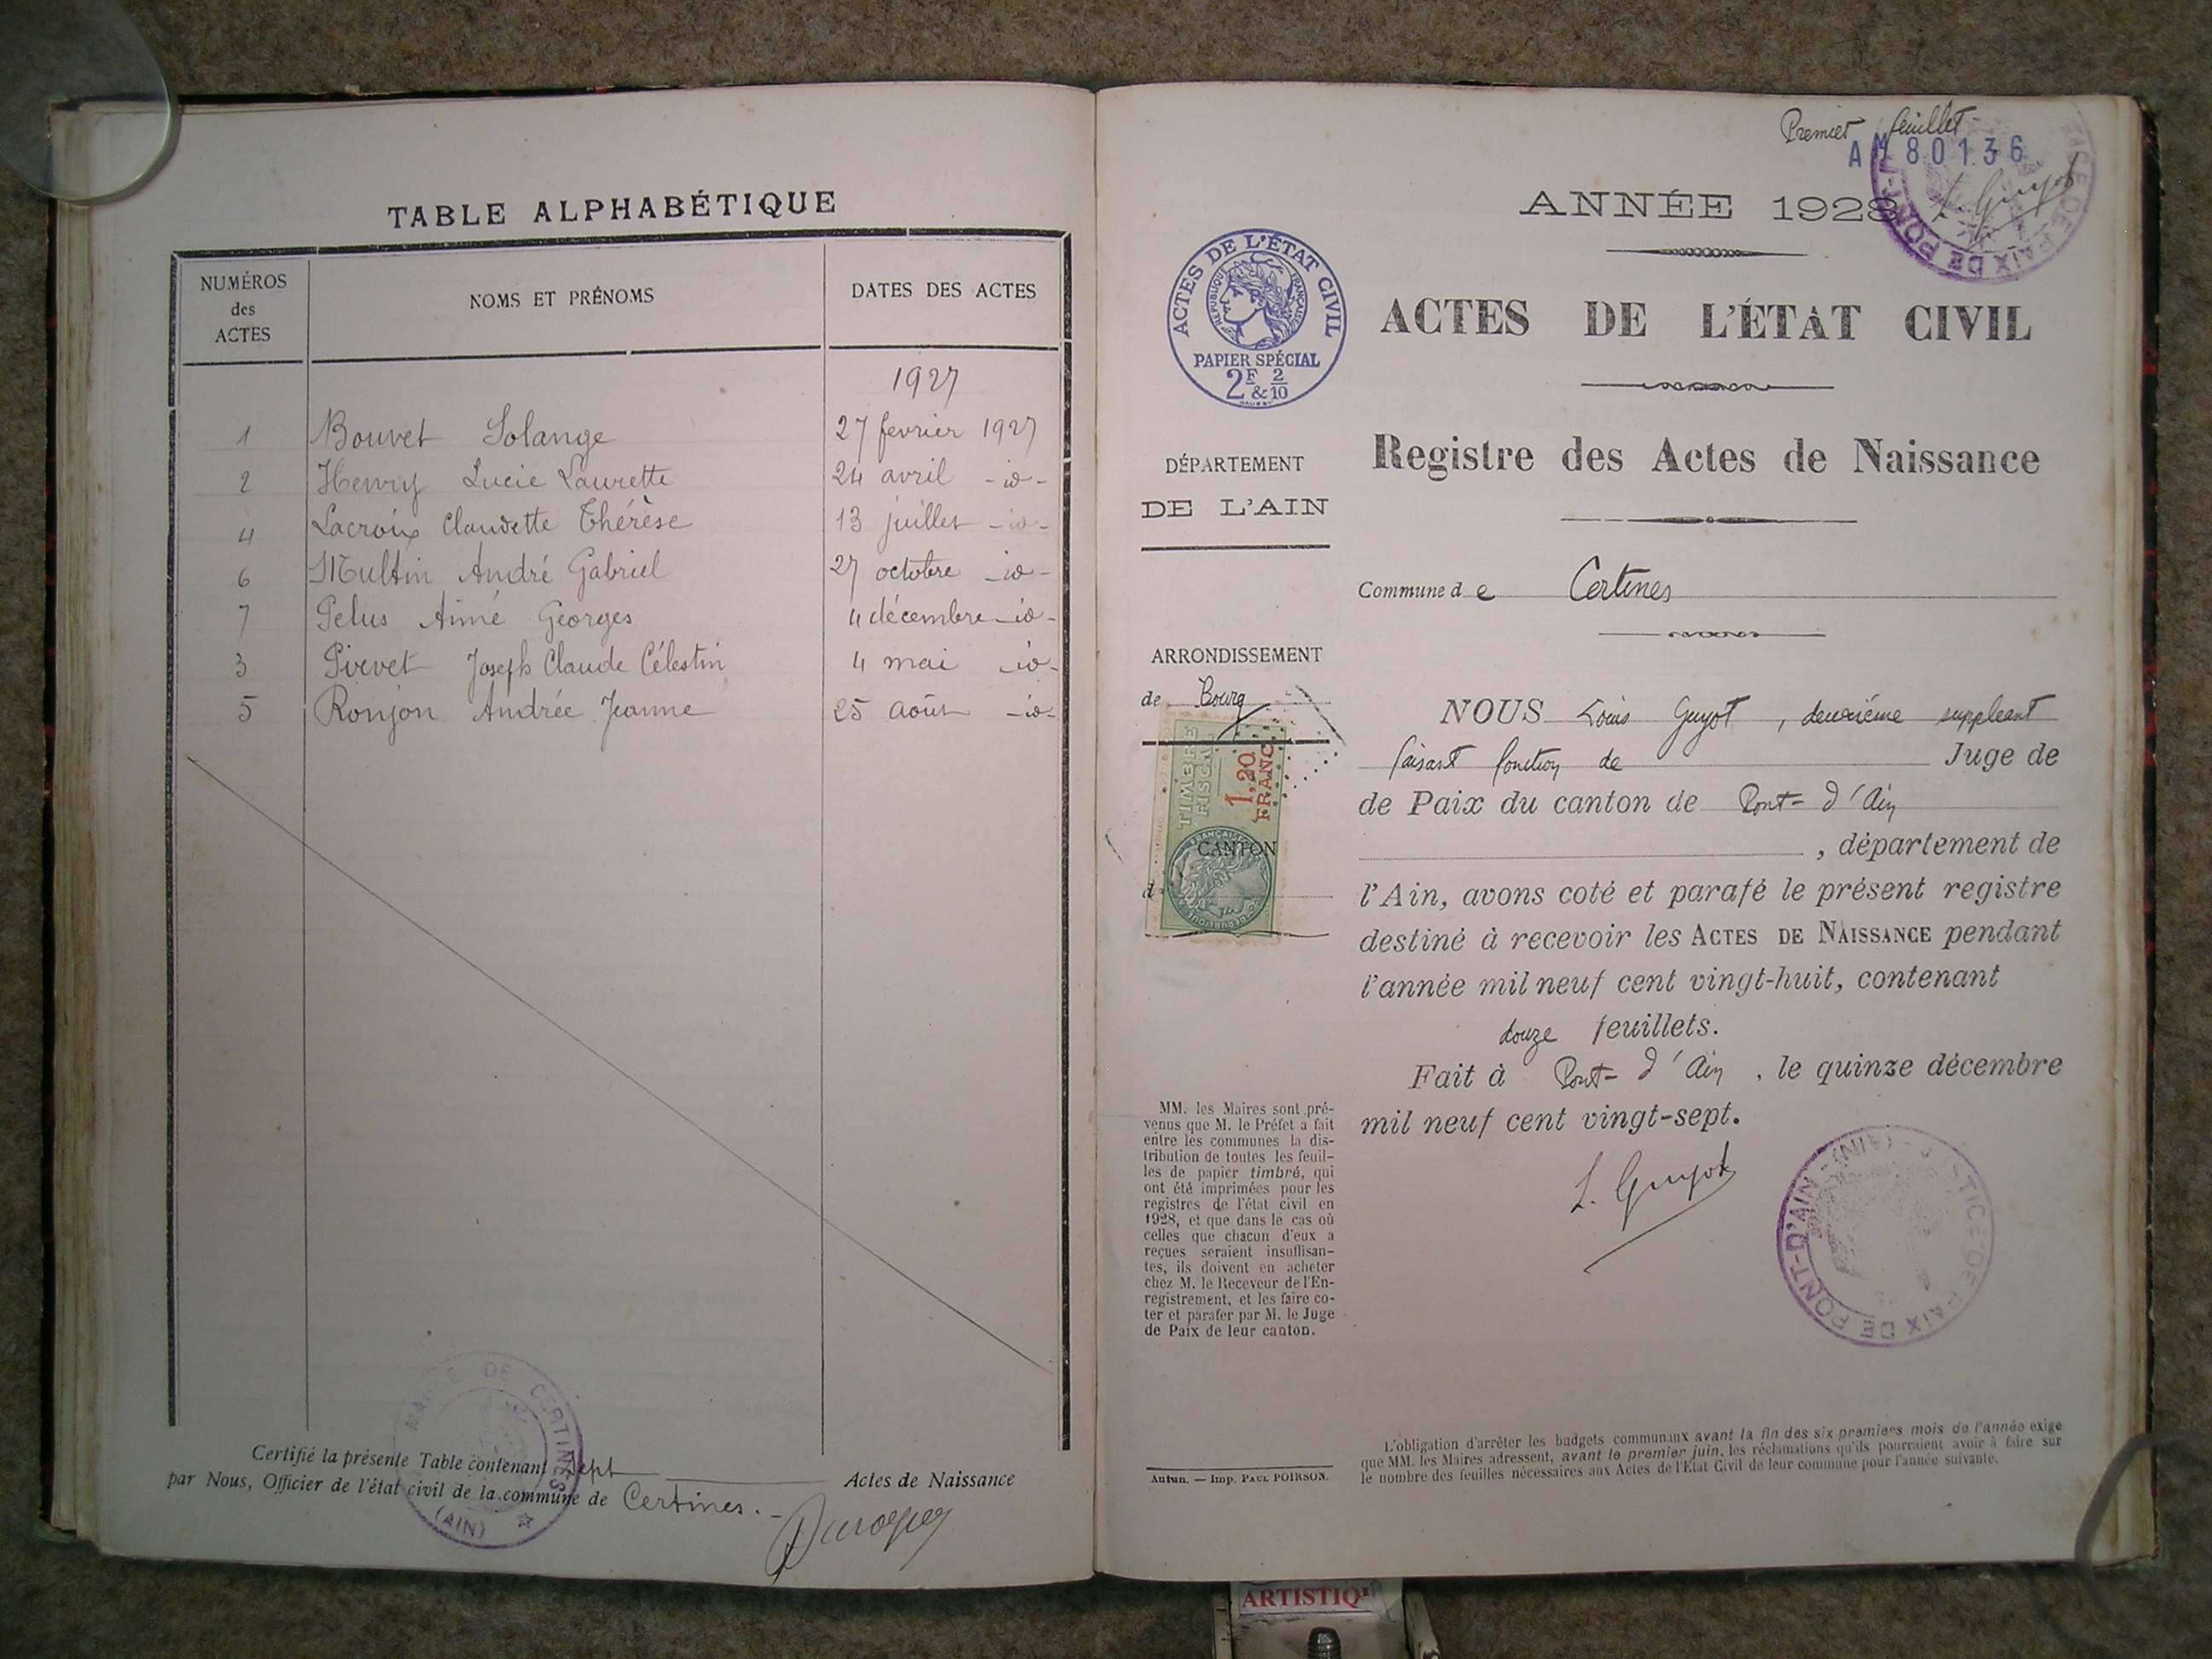 TABLE ALPHABÉTIQUE
NUMÉROS des ACTES
NOMS ET PRÉNOMS
DATES DES ACTES
1927
1 Bouvet Solange 27 fevrier 1927
2 Henry Lucie Laurette 24 avril -id-
4 Lacroix Claudette Thérèse 13 juillet -id-
6 Multin André Gabriel 27 octobre -id-
7 Pelus Aimé Georges 4 décembre -id-
3 Pirvet Joseph Claude Célestin 4 mai -id-
5 Ronjon Andrée Jeanne 25 août -id-
Certifié la présente Table contenant sept Actes de Naissance
par Nous, Officier de l'état civil de la commune de Certines.
MAIRIE DE CERTINES
(AIN)
Premier feuillet
AM 80136
L. Guyot
ANNÉE 1928
ACTES DE L'ÉTAT CIVIL
RÉPUBLIQUE FRANÇAISE
PAPIER SPÉCIAL
2F & 2/10
ACTES DE L'ÉTAT CIVIL
Registre des Actes de Naissance
DÉPARTEMENT
DE L'AIN
Commune de Certines
ARRONDISSEMENT
de Bourg
TIMBRE FISCAL
1,20 FRANC
CANTON
d
NOUS Louis Guyot, deuxième suppleant
faisant fonction de Juge de
de Paix du canton de Pont-d'Ain
, département de
l'Ain, avons coté et parafé le présent registre
destiné à recevoir les ACTES DE NAISSANCE pendant
l'année mil neuf cent vingt-huit, contenant
douze feuillets.
Fait à Pont-d'Ain, le quinze décembre
mil neuf cent vingt-sept.
L. Guyot
JUSTICE DE PAIX DE PONT-D'AIN-(AIN)
MM. les Maires sont pré-
venus que M. le Préfet a fait
entre les communes la dis-
tribution de toutes les feuil-
les de papier timbré, qui
ont été imprimées pour les
registres de l'état civil en
1928, et que dans le cas où
celles que chacun d'eux a
reçues seraient insuffisan-
tes, ils doivent en acheter
chez M. le Receveur de l'En-
registrement, et les faire co-
ter et parafer par M. le Juge
de Paix de leur canton.
Autun. — Imp. PAUL POIRSON.
L'obligation d'arrêter les budgets communaux avant la fin des six premiers mois de l'année exige
que MM. les Maires adressent, avant le premier juin, les réclamations qu'ils pourraient avoir à faire sur
le nombre des feuilles nécessaires aux Actes de l'Etat Civil de leur commune pour l'année suivante.
ARTISTIQ